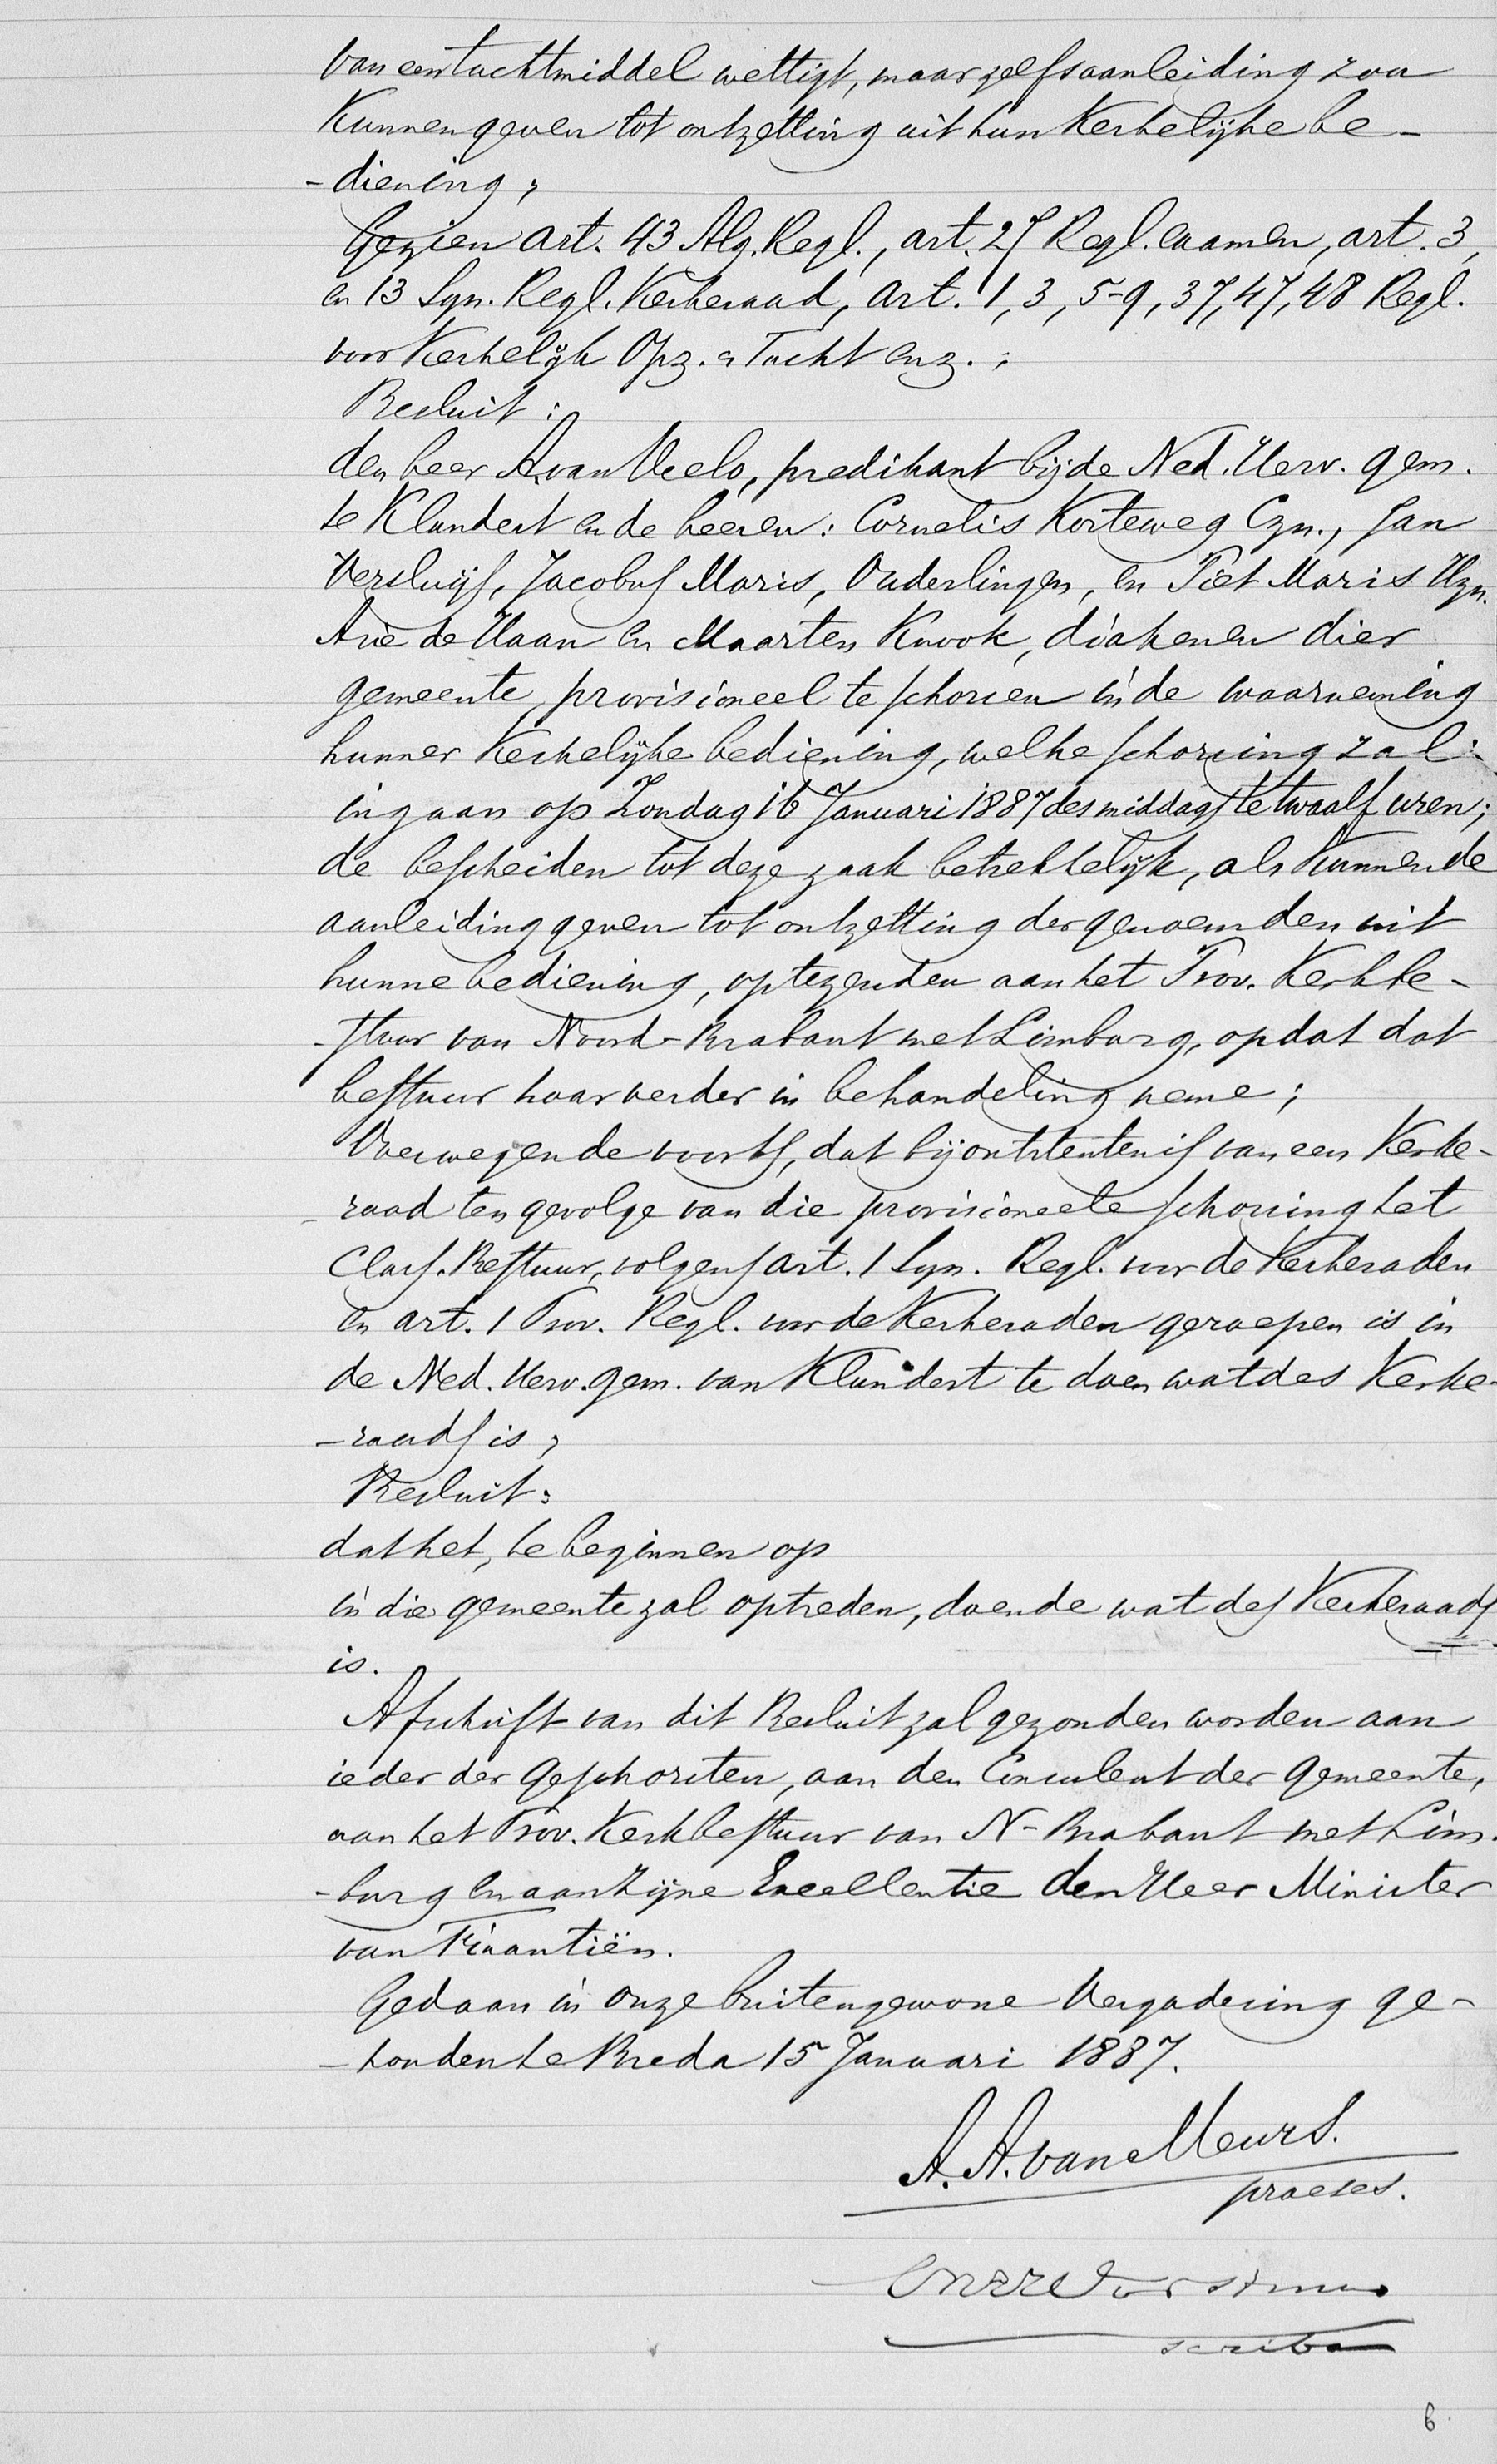 van een tuchtmiddel wettigt, maar zelfs aanleiding zou
kunnen geven tot ontzetting uit hun kerkelijke be-
-diening;
Gezien art. 43 Alg. Regl., art. 27 Regl. examen, art. 3,
en 13 Syn. Regl. Kerkeraad, art. 1, 3, 5-9, 37, 47, 48 Regl.
voor Kerkelijk Opz. en Tucht enz.;
Besluit:
den heer A. van Veelo, predikant bij de Ned. Herv. gem.
te Klundert en de heeren: Cornelis Korteweg Czn., Jan
Versluijs, Jacobus Maris, Ouderlingen, en Piet Maris Hzn.
Arie de Haan en Maarten Knook, diakenen dier
gemeente, provisioneel te schorsen in de waarneming
hunner kerkelijke bediening, welke schorsing zal
ingaan op Zondag 16 Januari 1887 des middags te twaalf uren;
de bescheiden tot deze zaak betrekkelijk, als kunnende
aanleiding geven tot ontzetting der genoemden uit
hunne bediening, optezenden aan het Prov. Kerkbe-
-stuur van Noord-Brabant met Limburg, opdat dat
bestuur haar verder in behandeling neme;
Overwegende voorts, dat bij ontstentenis van een Kerke-
-raad ten gevolge van die provisioneele schorsing het
Class. Bestuur, volgens art. 1 Syn. Regl. voor de Kerkeraden
en art. 1 Prov. Regl. voor de Kerkeraden geroepen is in
de Ned. Herv. gem. van Klundert te doen wat des Kerke-
-raads is;
Besluit:
dat het, te beginnen op
in die gemeente zal optreden, doende wat des Kerkeraads
is.
Afschrift van dit Besluit zal gezonden worden aan
ieder der geschorsten, aan den Consulent der gemeente,
aan het Prov. Kerkbestuur van N-Brabant met Lim-
-burg en aan Zijne Excellentie den Heer Minister
van Finantiën.
Gedaan in onze buitengewone Vergadering ge-
-houden te Breda 15 Januari 1887.
A. A. van Meurs.
praeses.
scriba
6.